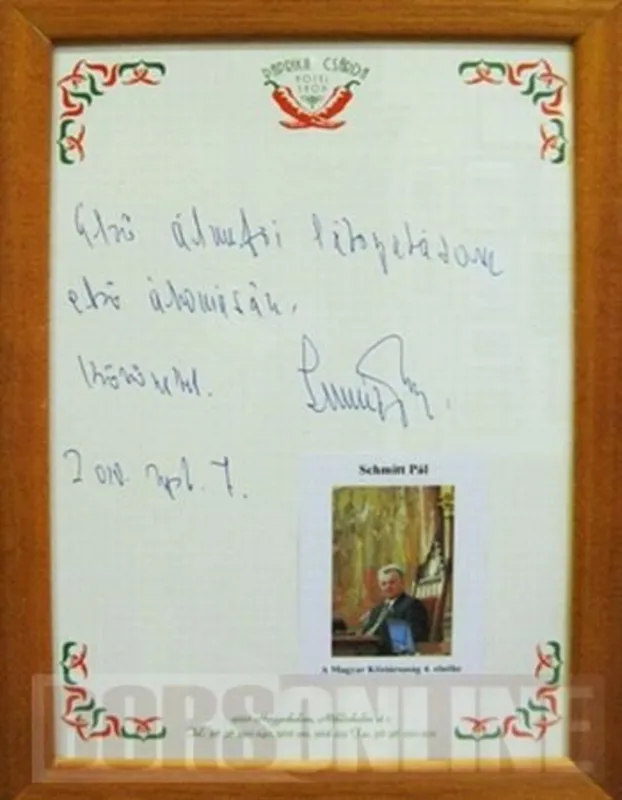 PAPRIKA CSÁRDA
HOTEL
Első államfői látogatásom
első állomásán.
Köszönettel.
2010. szept. 7.
Schmitt Pál
A Magyar Köztársaság 4. elnöke
BORSONLINE